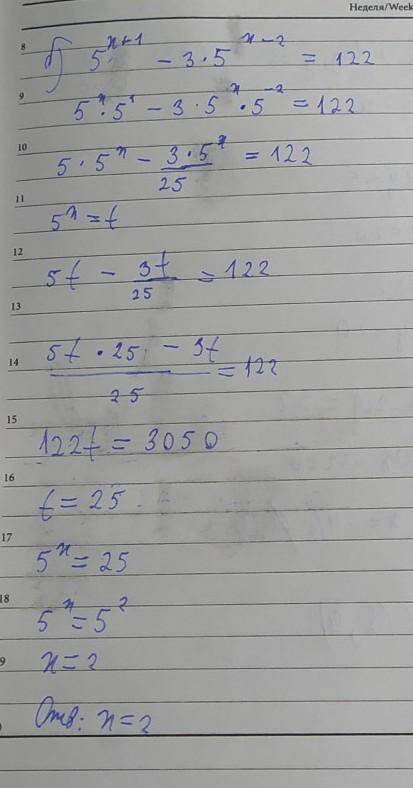 Неделя/Week
8 б) 5^{x+1} - 3 · 5^{x-2} = 122
9 5^x · 5^1 - 3 · 5^x · 5^{-2} = 122
10 5 · 5^x - \frac{3 · 5^x}{25} = 122
11 5^x = t
12 5t - \frac{3t}{25} = 122
13
14 \frac{5t · 25 - 3t}{25} = 122
15 122t = 3050
16 t = 25
17 5^x = 25
18 5^x = 5^2
9 x = 2
Отв: x = 2